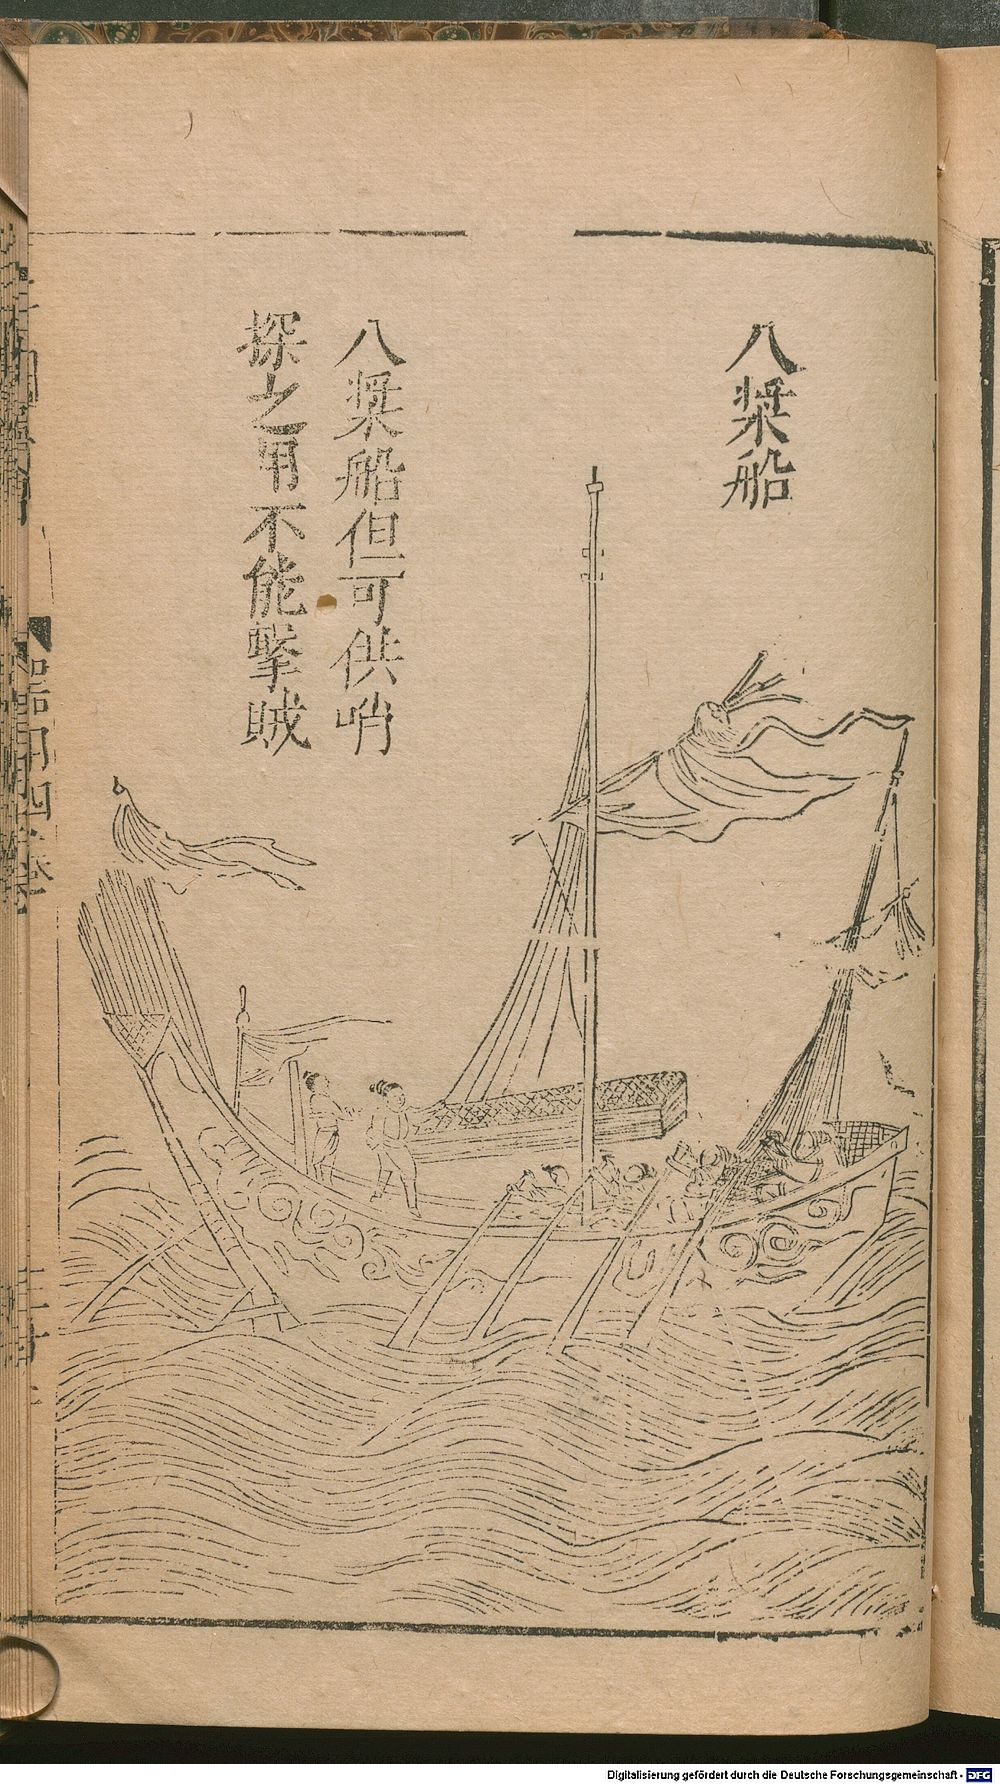 八槳船
八槳船但可供哨
探之用不能擊賊
器用四卷
Digitalisierung gefördert durch die Deutsche Forschungsgemeinschaft - DFG